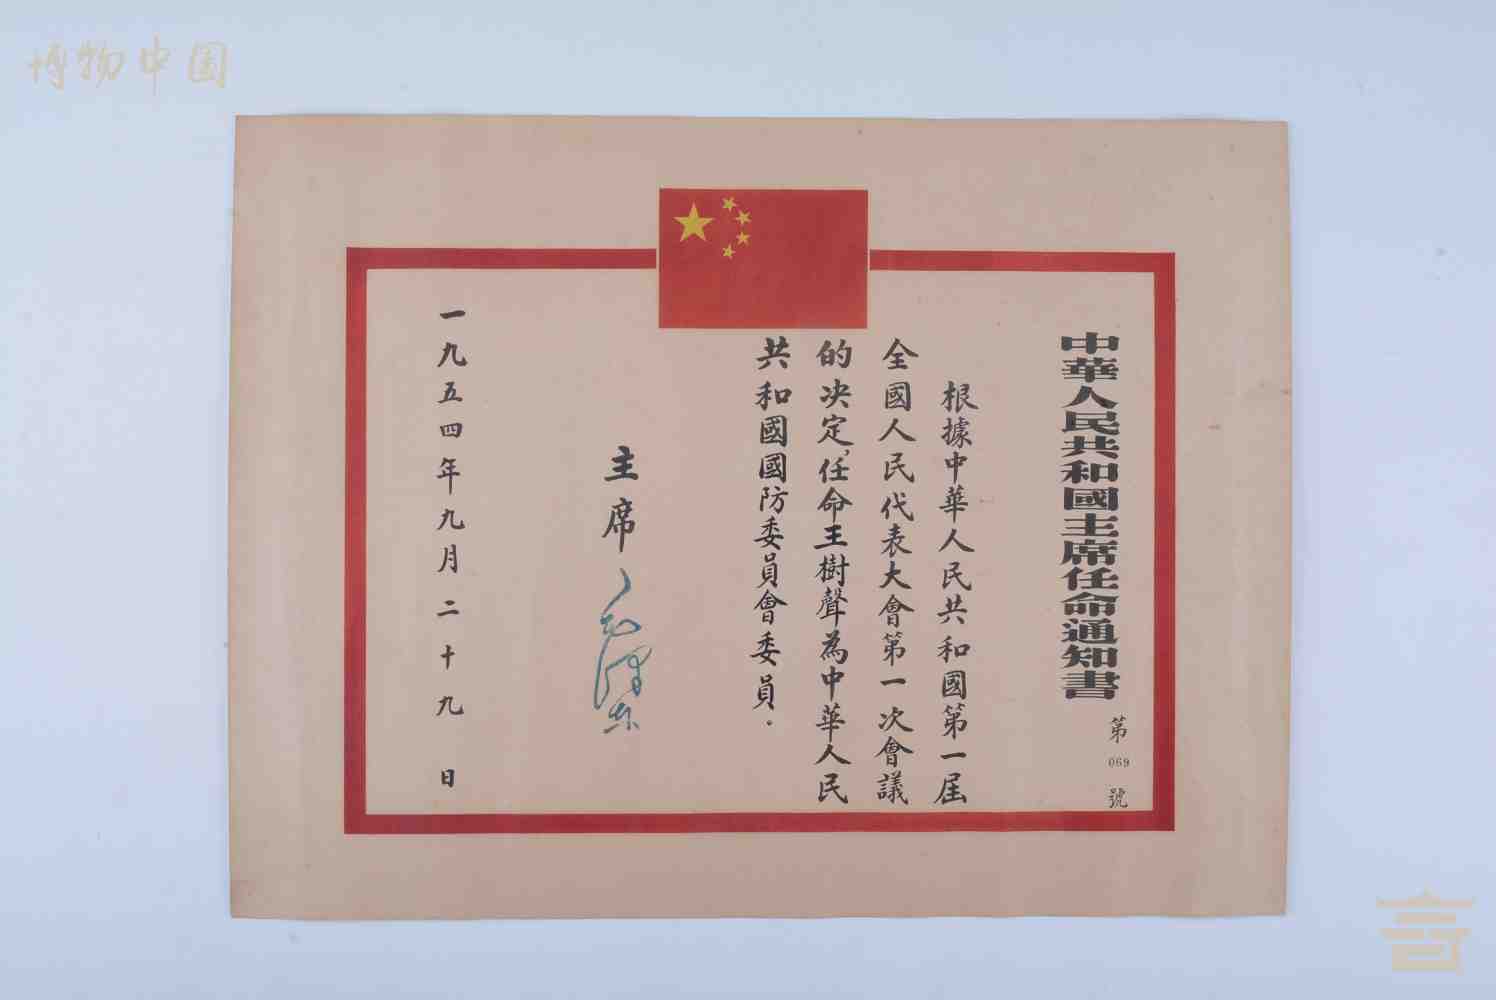 博物中国
中華人民共和國主席任命通知書
第069號
根據中華人民共和國第一屆
全國人民代表大會第一次會議
的决定，任命王樹聲為中華人民
共和國國防委員會委員．
主席 毛澤东
一九五四年九月二十九日